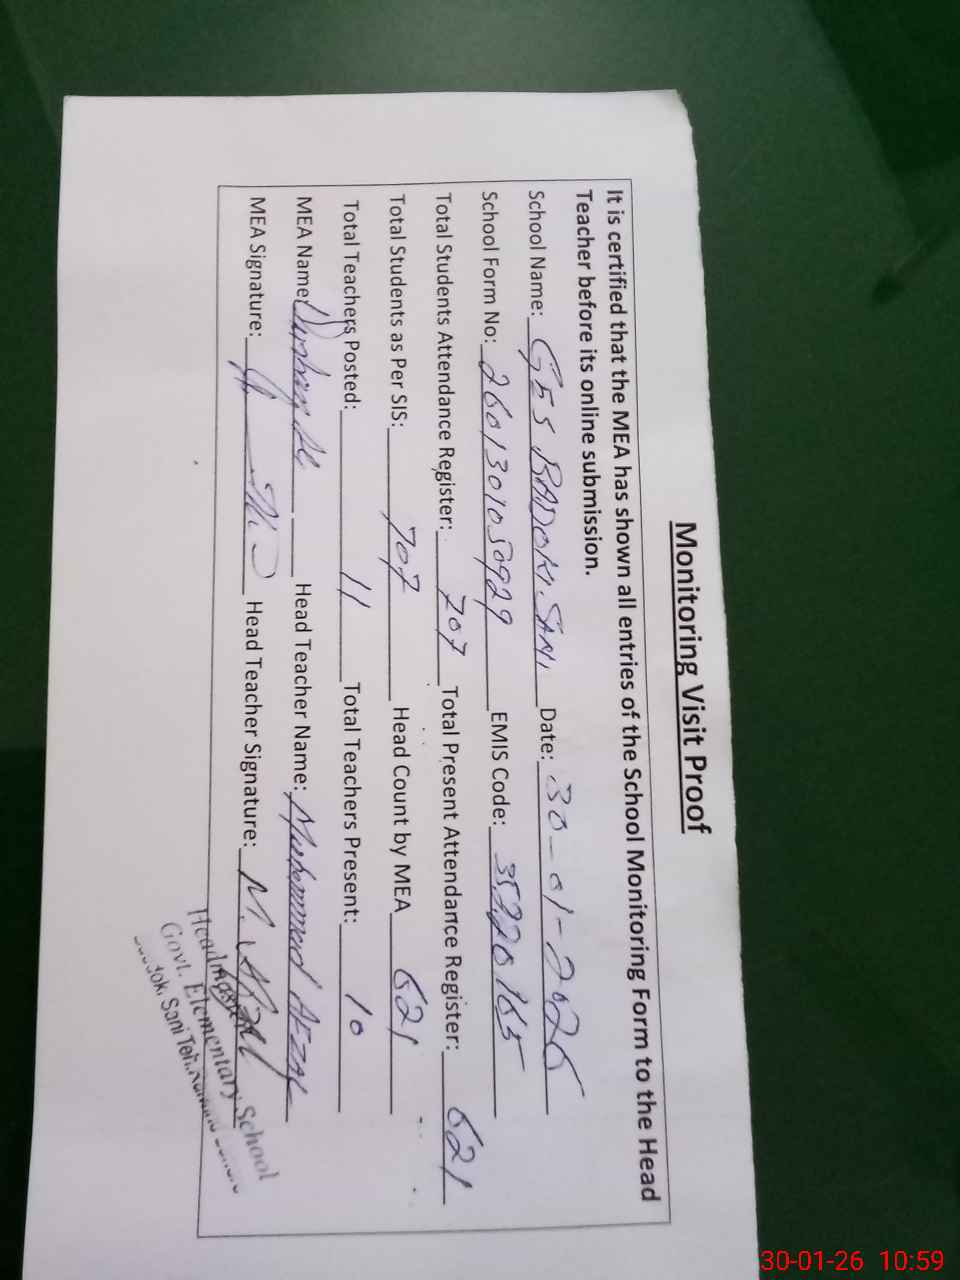 Monitoring Visit Proof
It is certified that the MEA has shown all entries of the School Monitoring Form to the Head
Teacher before its online submission.
School Name: GES BADOKI SANI Date: 30-01-2026
School Form No: 2601301050929 EMIS Code: 35220165
Total Students Attendance Register: 707 Total Present Attendance Register: 621
Total Students as Per SIS: 707 Head Count by MEA 621
Total Teachers Posted: 11 Total Teachers Present: 10
MEA Name: Head Teacher Name: Muhammad AFZAL
MEA Signature: Head Teacher Signature: M. Afzal
Headmaster
Govt. Elementary School
Sani
30-01-26 10:59